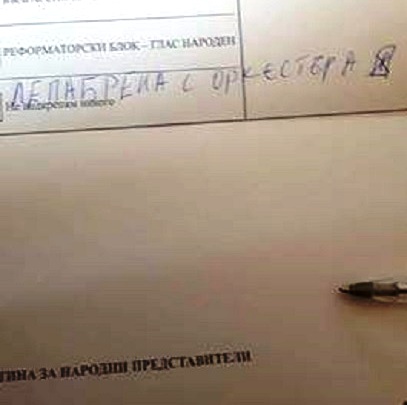 РЕФОРМАТОРСКИ БЛОК – ГЛАС НАРОДЕН
ДЕПАБРЕПА С ОРКЕСТЕРА
Не подкрепям никого
ТИНА ЗА НАРОДНИ ПРЕДСТАВИТЕЛИ